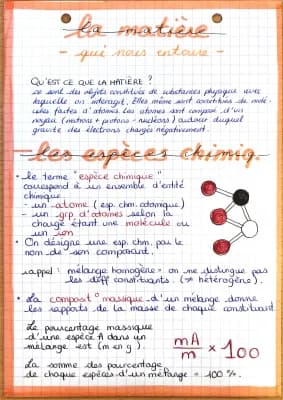 la matière
- qui nous entoure -
QU'EST CE QUE LA MATIÈRE ?
ce sont des objets constitués de substances physique avec
laquelle on interagit. Elles même sont constituées de molé-
cules faites d'atomes. Les atomes sont composé d'un
noyau (neutrons + protons = nucléons) autour duquel
gravite des électrons chargés négativement.
- les espèces chimiq.
• le terme "espèce chimique"
correspond à un ensemble d'entité
chimique
- un atome (esp. chim. atomique)
- un grp d'atomes selon la
charge étant une molécule ou
un ion
• On désigne une esp. chim. par le
nom de son composant.
rappel : mélange homogène = on ne distingue pas
les diff constituants. (≠ hétérogène).
• La compost° massique d'un mélange donne
les rapports de la masse de chaque constituant
Le pourcentage massique
d'une espèce A dans un
mélange est (m en g) :
mA/m × 100
La somme des pourcentage
de chaque espèces d'un mélange = 100 %.